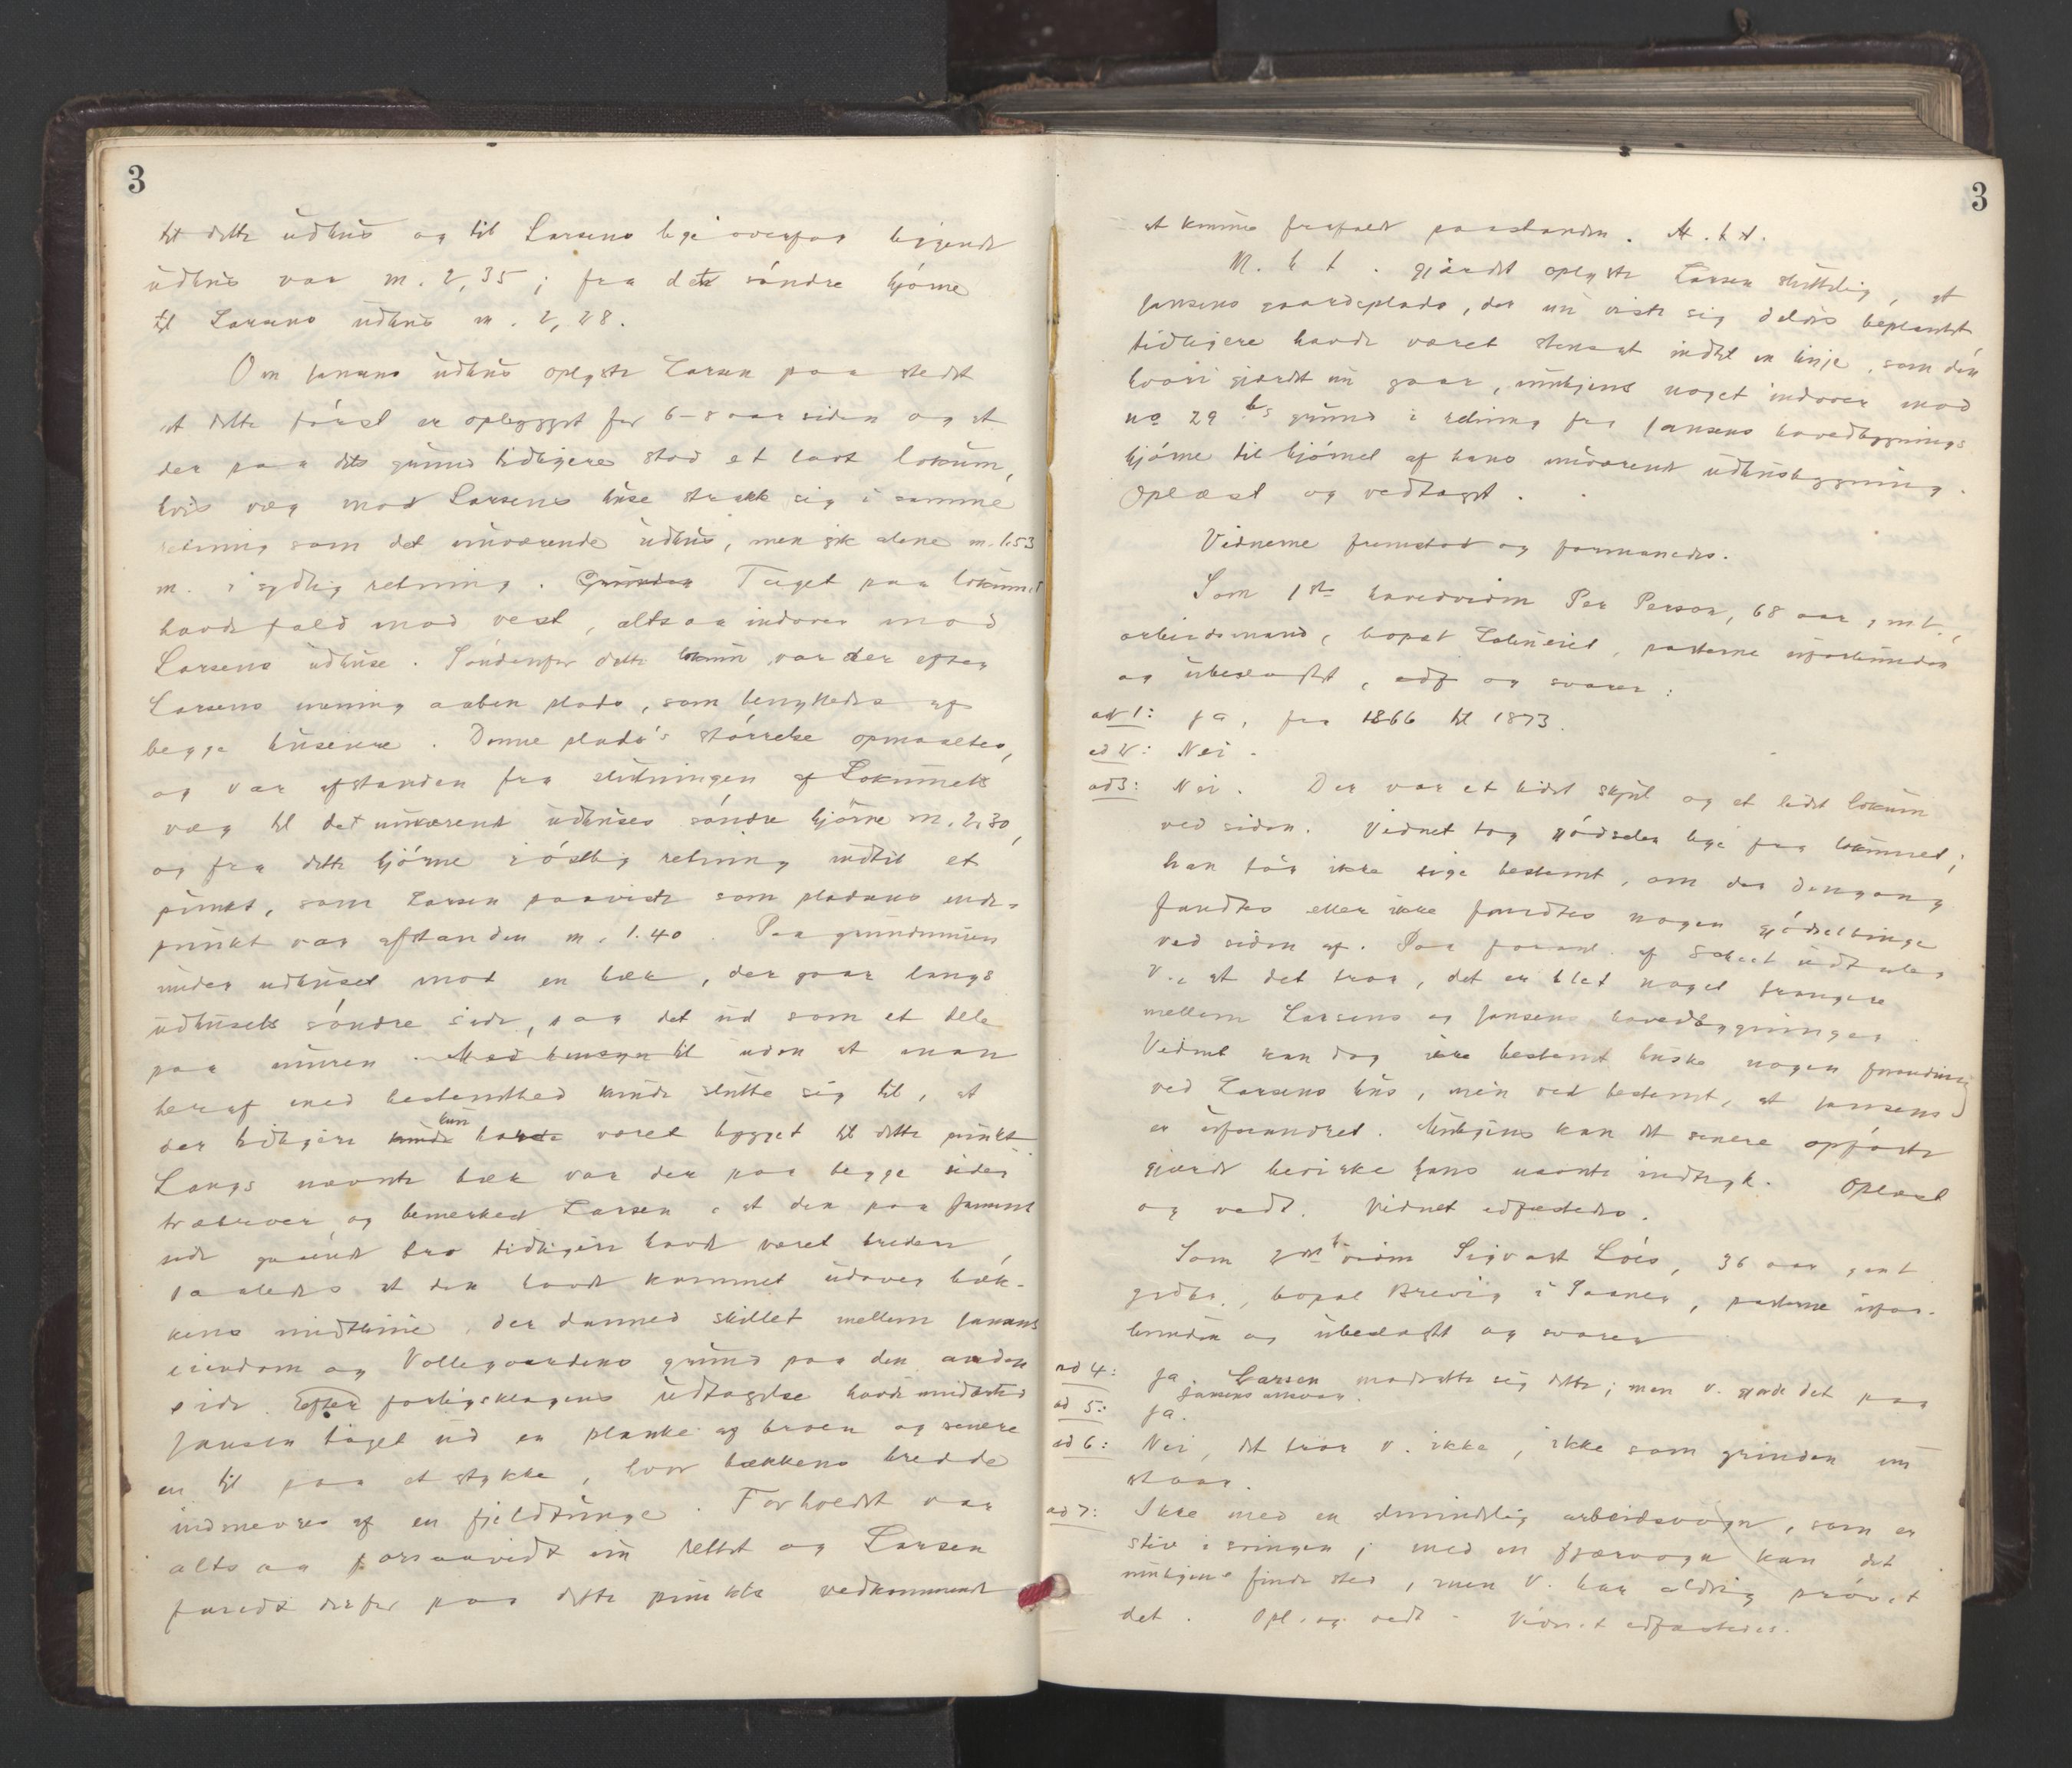 3
til dette udhus og til Larsens lige overfor liggende
udhus var m. 2,35; fra dets søndre hjørne
til Larsens udhus m. 2,28.
Om Jansens udhus oplyste Larsen paa stedet
at dette først er opbygget for 6-8 aar siden og at
der paa dets grund tidligere stod et lavt lokum,
hvis væg mod Larsens huse strakk sig i samme
retning som det nuværende udhus, men gik alene m. 1.53
m. i sydlig retning. Grunden Taget paa lokumet
havde fald mod vest, altsaa indover mod
Larsens udhuse. Søndenfor dette lokum var der efter
Larsens mening aaben plads, som benyttedes af
begge huseiere. Denne plads's størrelse opmaaltes,
og var afstanden fra slutningen af Lokumets
væg til det nuværende udhuses søndre hjørne m. 2,30,
og fra dette hjørne i østlig retning indtil et
punkt, som Larsen paaviste som pladsens ende-
punkt var afstanden m. 1.40. Paa grundmuren
under udhuset mod en bæk, der gaar langs
udhusets søndre side, saa det ud som et dele
paa muren. Med hensyn til uden at man
heraf med bestemthed kunde slutte sig til, at
der tidligere kunde havde kun været bygget til dette punkt
Langs nævnte bæk var der paa begge sider
træbroer og bemerked Larsen, at den paa Jansens
side gaaende bro tidligere havde været bredere,
saaledes at den havde kommet udover bæk-
kens midtlinie, der danned skillet mellem Jansens
eiendom og Vollegaardens grund paa den anden
side. Efter forligsklagens udtagelse havde imidlertid
Jansen taget ud en planke af broen og senere
en til paa et stykke, hvor bækkens bredde
indsnevres af en fjeldtunge. Forholdet var
altsaa forsaavidt nu rettet og Larsen
fandt derfor paa dette punkts vedkommende
3
at kunne frafalde paastanden. A. t. A.
M. h. t. gjærdet oplyste Larsen sluttelig, at
Jansens gaardsplads, der nu viste sig deldvis beplantet
tidligere havde været stensat indtil en linje, som den
hvori gjærdet nu gaar, muligens noget indover mod
no 29 's grund i retning fra Jansens hovedbygnings
hjørne til hjørnet af hans nuværende udhusbygning.
Oplæst og vedtaget.
Vidnerne fremstod og formanedes.
Som 1ste hovedvidne Per Person, 68 aar, mt.,
arbeidsmand, bopæl partene uforbunden
og ubeslægtet, edf og svarer:
ad 1: Ja, fra 1866 til 1873.
ad 2: Nei.
ad 3: Nei. Der var et lidet skjul og et lidet lokum
ved siden. Vidnet tog gjødselen lige fra lokumet;
han tør ikke sige bestemt, om der dengang
fandtes eller ikke fandtes nogen gjødselbinge
ved siden af. Paa foranl. af udtaler
V., at det tror, det er blet noget trangere
mellem Larsens og Jansens hovedbygninger.
Vidnet kan dog ikke bestemt huske nogen forandring
ved Larsens hus, men ved bestemt, at Jansens
er uforandret. Muligens kan det senere opførte
gjærde bevirke hans nævnte indtryk. Oplæst
og vedt. Vidnet edfæstedes.
Som 2det vidne Sigvart Lóes, 36 aar gaml
grdbr., bopæl Brevig i , partene ufor-
bunden og ubeslægtet og svarer
ad 4: Ja. Larsen modsatte sig dette; men v. gjorde det paa
Jansens ansvar.
ad 5: Ja.
ad 6: Nei, det tror v. ikke, ikke som grinden nu
staar.
ad 7: Ikke med en almindelig arbeidsvogn, som er
stiv i svingen; med en fjærvogn kan det
muligens finde sted, men V. har aldrig prøvet
det. Opl. og vedt. Vidnet edfæstedes.